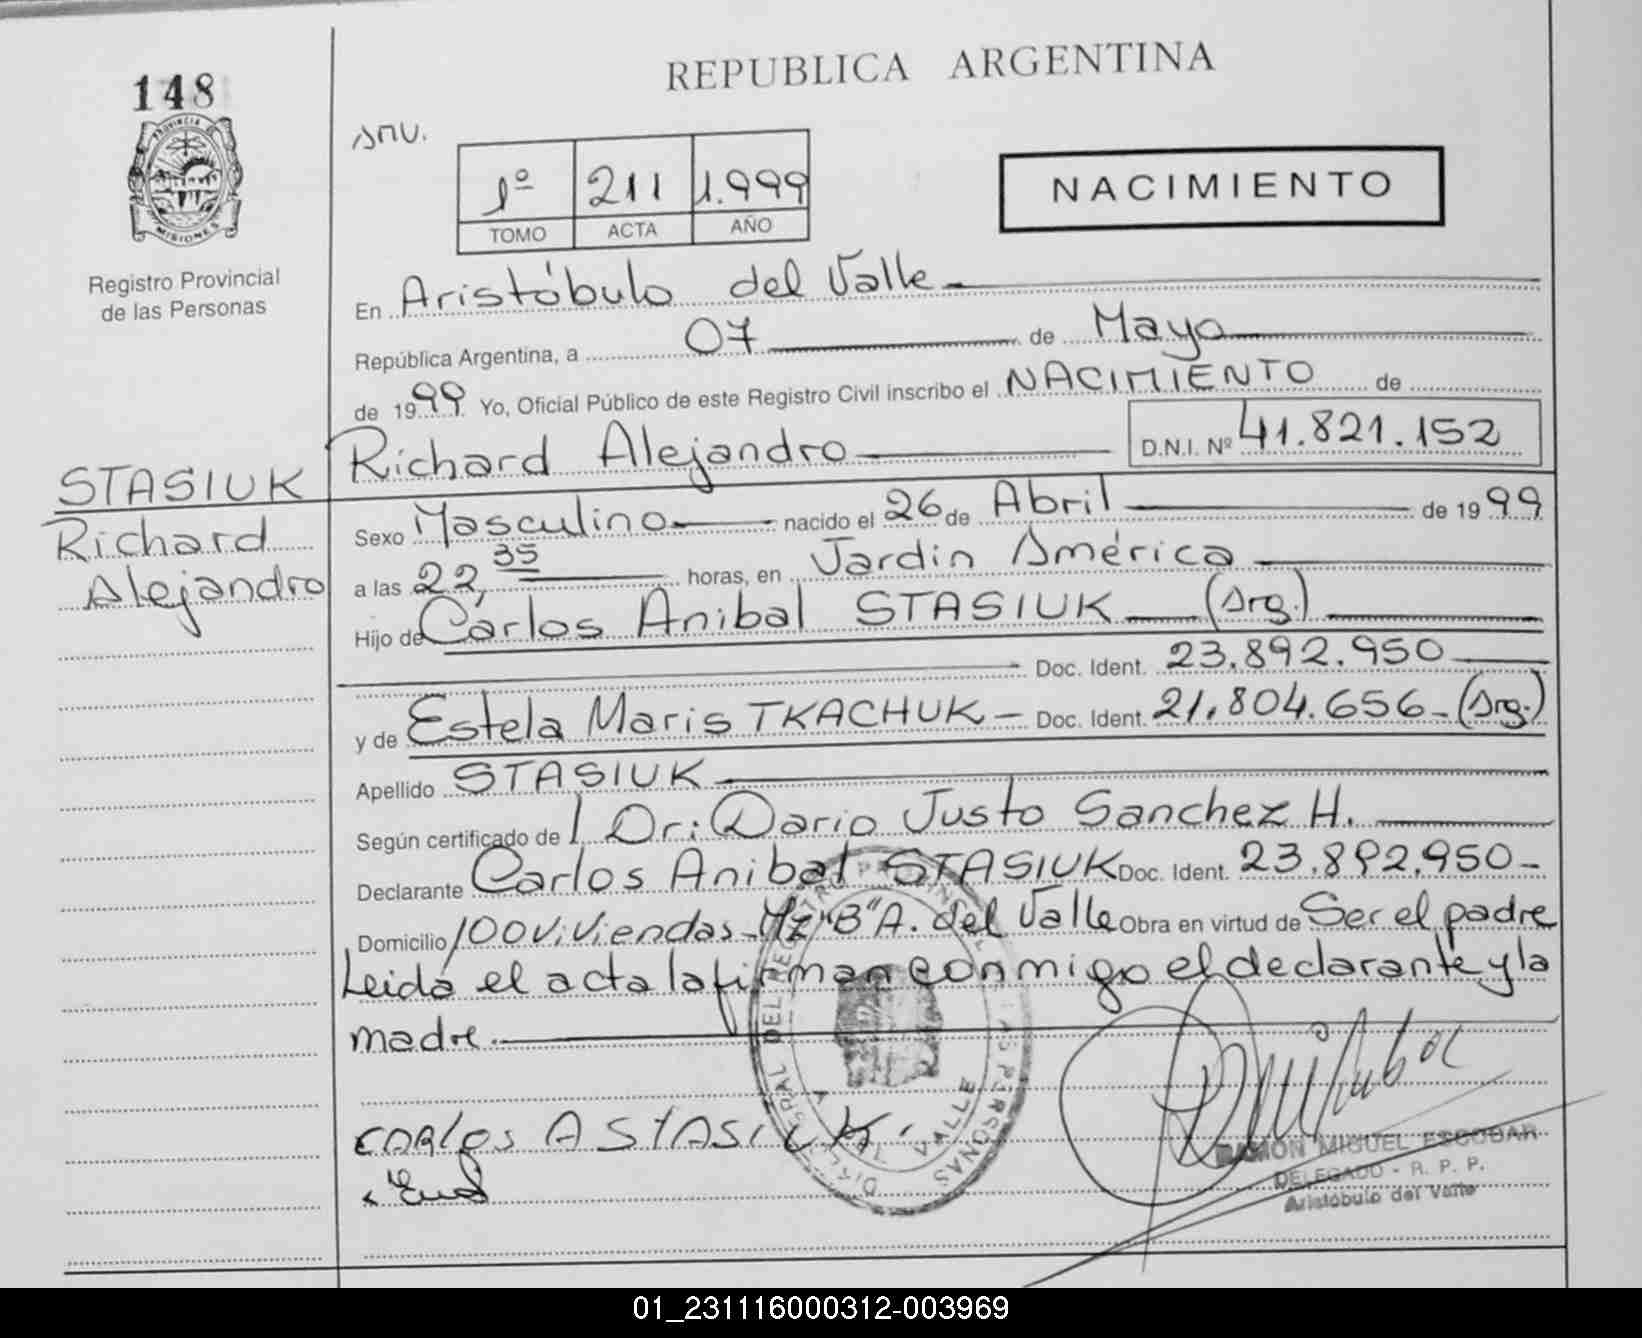 148
PROVINCIA D
MISIONES
Registro Provincial
de las Personas
STASIUK
Richard
Alejandro
REPUBLICA ARGENTINA
1º 211 1.999
TOMO ACTA AÑO
NACIMIENTO
En Aristóbulo del Valle
República Argentina, a 07 de Mayo
de 1999 Yo, Oficial Público de este Registro Civil inscribo el NACIMIENTO de
Richard Alejandro D.N.I. Nº 41.821.152
Sexo Masculino nacido el 26 de Abril de 1999
a las 22,35 horas, en Jardin América
Hijo de Carlos Anibal STASIUK (Arg.)
Doc. Ident. 23.892.950
y de Estela Maris TKACHUK - Doc. Ident. 21.804.656 - (Arg.)
Apellido STASIUK
Según certificado del Dr: Dario Justo Sanchez H.
Declarante Carlos Anibal STASIUK Doc. Ident. 23.892.950 -
Domicilio 100 Viviendas - Mz "B" A. del Valle Obra en virtud de Ser el padre
Leida el acta la firman conmigo el declarante y la
madre.
CARLOS A STASIUK.
RAMÓN MIGUEL ESCOBAR
DELEGADO - R. P. P.
Aristóbulo del Valle
01_231116000312-003969